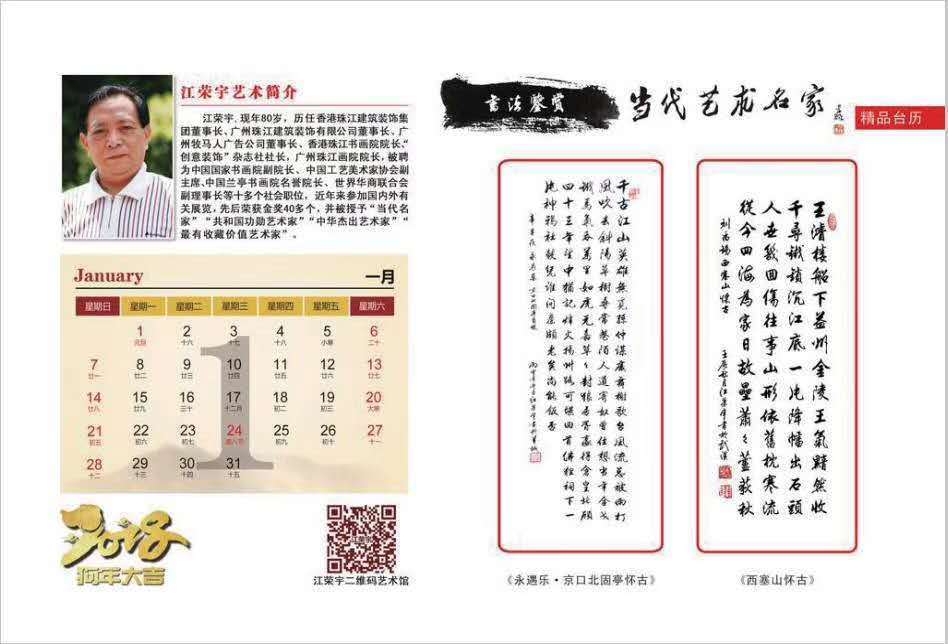 江荣宇艺术简介
江荣宇,现年80岁，历任香港珠江建筑装饰集
团董事长、广州珠江建筑装饰有限公司董事长、广
州牧马人广告公司董事长、香港珠江书画院院长、“
创意装饰”杂志社社长，广州珠江画院院长，被聘
为中国国家书画院副院长、中国工艺美术家协会副
主席、中国兰亭书画院名誉院长、世界华商联合会
副理事长等十多个社会职位，近年来参加国内外有
关展览，先后荣获金奖40多个，并被授予“当代名
家”“共和国功勋艺术家”“中华杰出艺术家”“
最有收藏价值艺术家”。
January 一月
星期日 星期一 星期二 星期三 星期四 星期五 星期六
1 2 3 4 5 6
元旦 十六 十七 十八 小寒 二十
7 8 9 10 11 12 13
廿一 廿二 廿三 廿四 廿五 廿六 廿七
14 15 16 17 18 19 20
廿八 廿九 三十 十二月 初二 初三 大寒
21 22 23 24 25 26 27
初五 初六 初七 腊八节 初九 初十 十一
28 29 30 31
十二 十三 十四 十五
1
2018
狗年大吉
江荣宇
江荣宇二维码艺术馆
书法鉴赏
当代艺术名家
精品台历
千古江山英雄無覓孫仲謀處舞榭歌台風流总被雨打
風吹去斜陽草樹尋常巷陌人道寄奴曾住想当年金戈
鐵馬氣吞萬里如虎元嘉草草封狼居胥赢得倉皇北顧
四十三年望中猶記烽火揚州路可堪回首佛狸祠下一
片神鴉社鼓凭谁问廉頗老矣尚能飯否
辛棄疾永遇樂京口北固亭懷古
《永遇乐·京口北固亭怀古》
王濬樓船下益州金陵王氣黯然收
千尋鐵鎖沉江底一片降幡出石頭
人世幾回傷往事山形依舊枕寒流
從今四海為家日故壘蕭蕭蘆荻秋
刘禹锡西塞山懷古
《西塞山怀古》